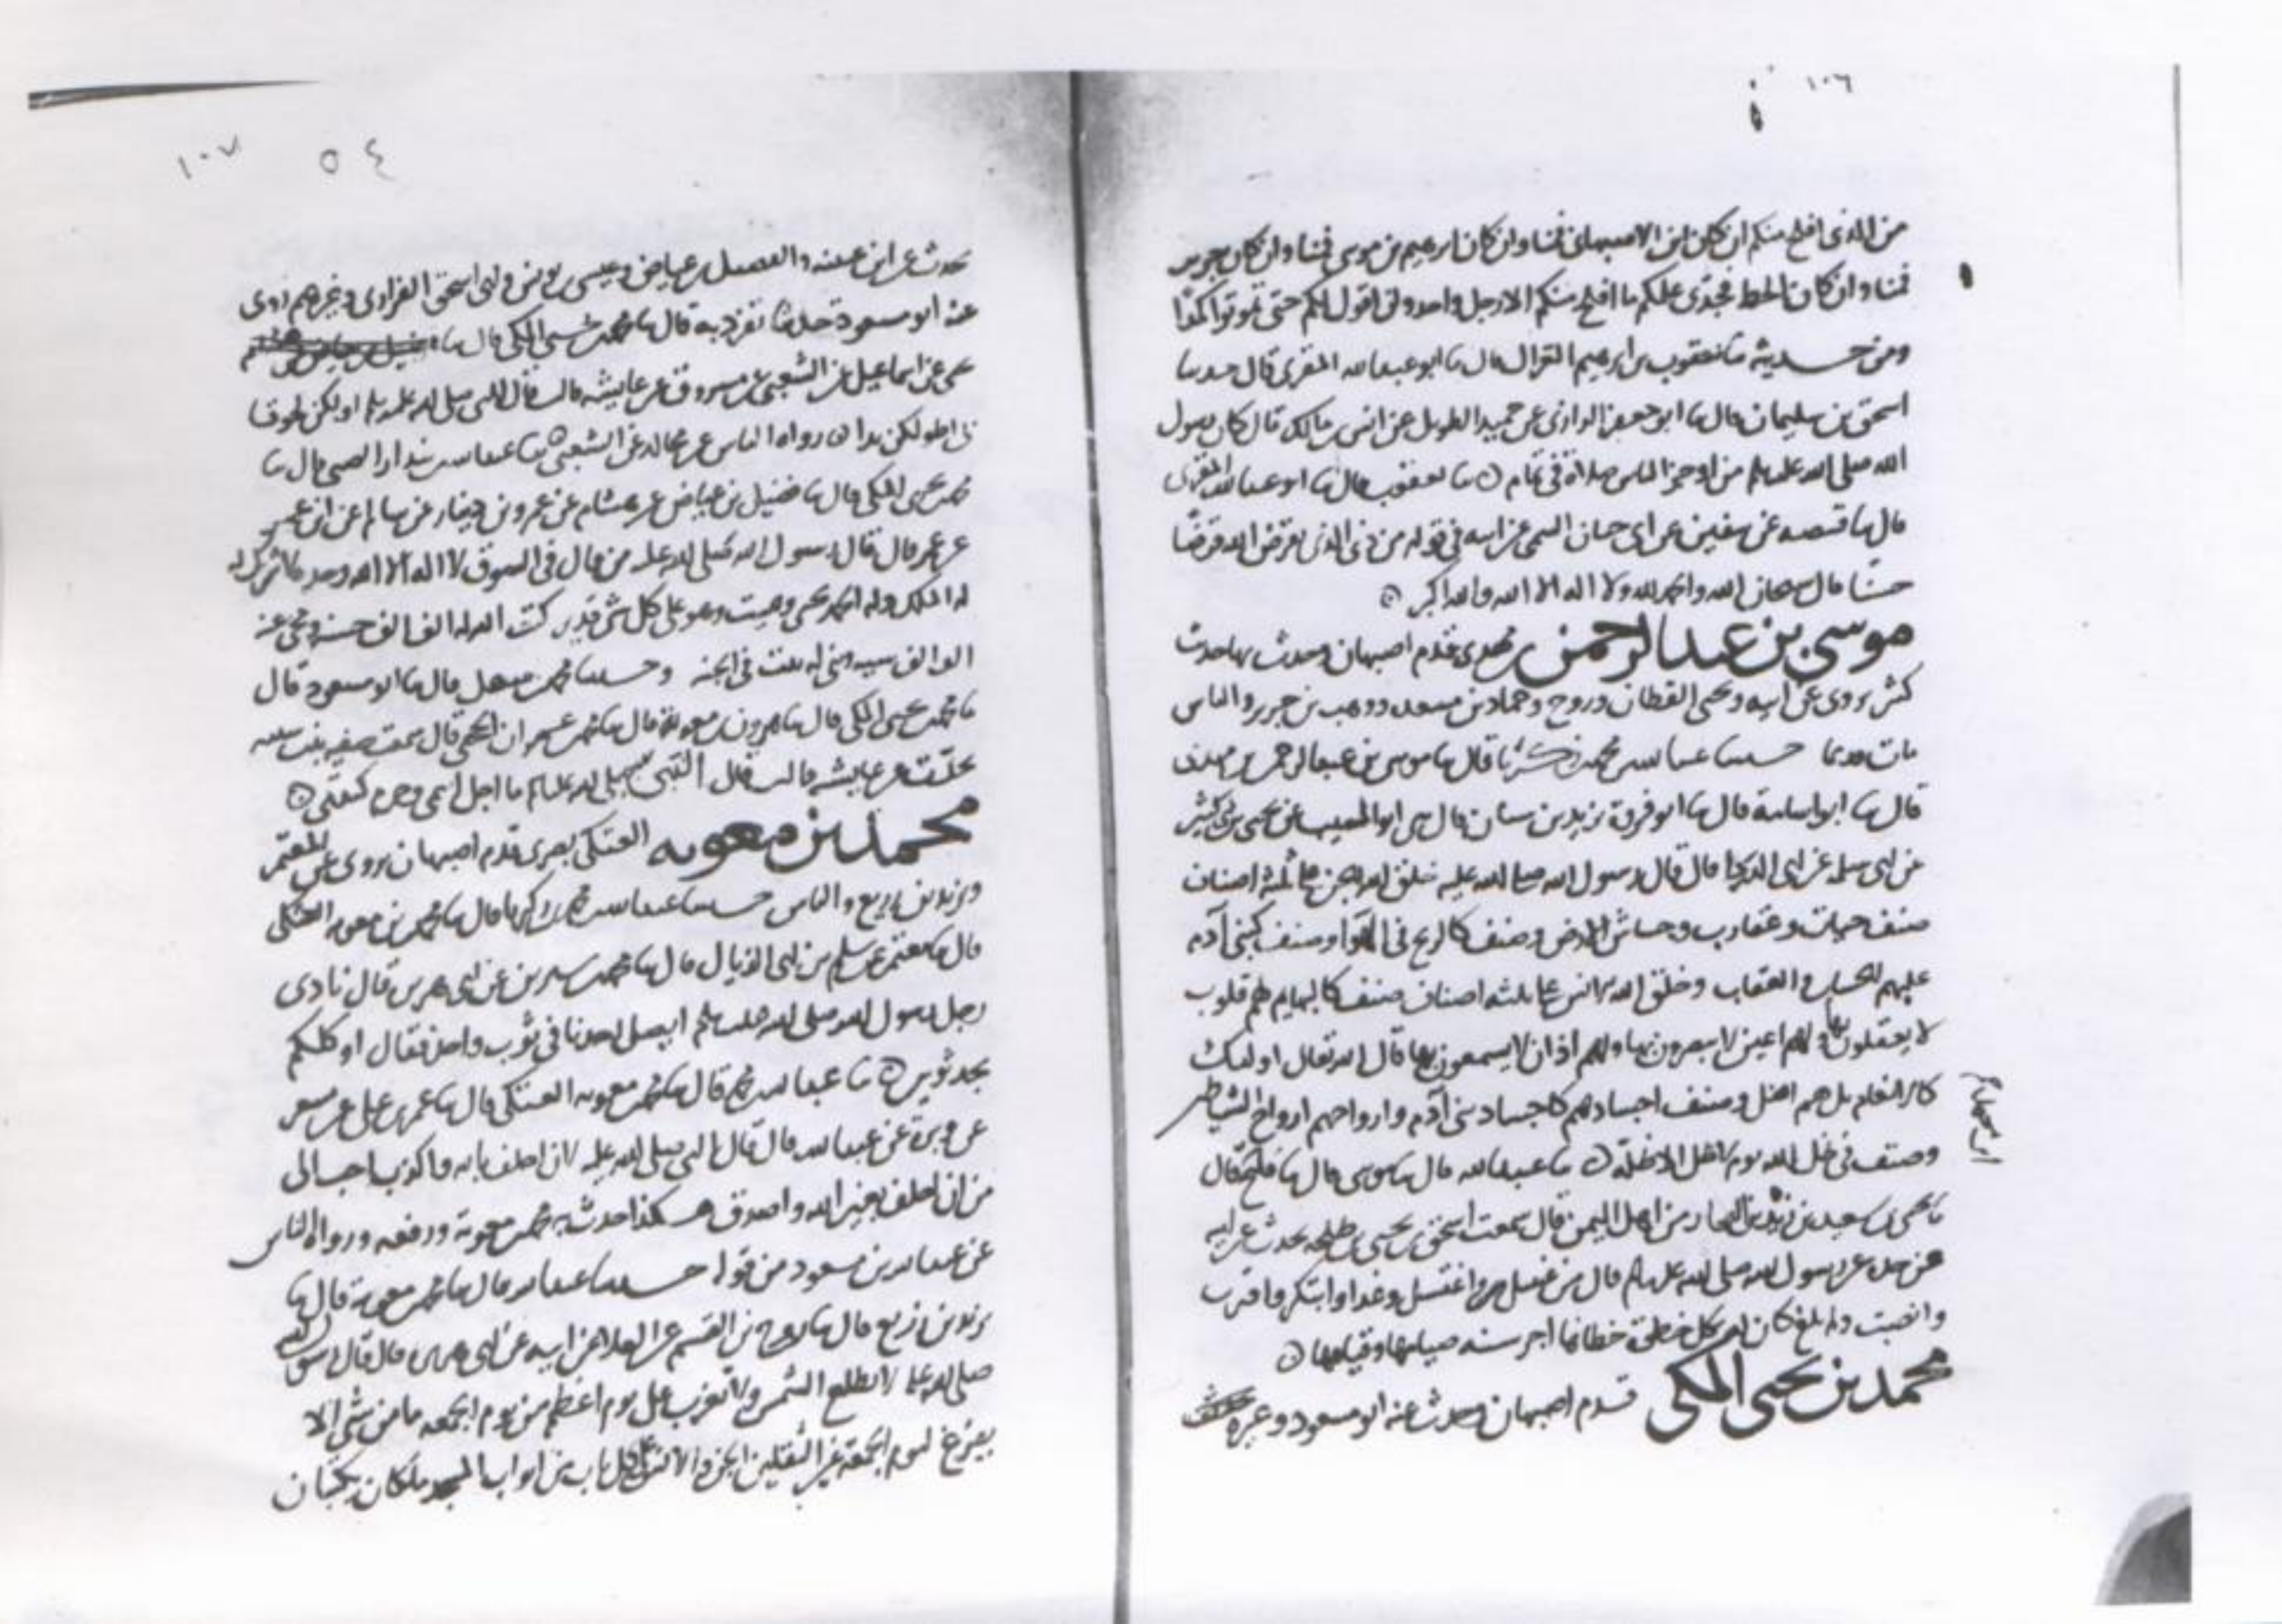 ١٠٦
من الذي افلح منكم ان كان ابن الاصبهاني فنا وان كان ابرهيم بن موسى فنا وان كان جرير
فنا وان كان الخط فجدي عليكم ما افلح منكم الا رجل واحد ولن اقول لكم حتى تموتوا كمدا
ومن حديثه ثنا يعقوب بن ابرهيم الغزال قال ثنا ابو عبد الله المقرى قال حدثنا
اسحق بن سليمان قال ثنا ابو جعفر الرازى عن حميد الطويل عن انس بن مالك قال كان رسول
الله صلى الله عليه وسلم من اوجز الناس صلاة في تمام ثنا يعقوب قال ثنا ابو عبد الله المقرى
قال ثنا قبيصه عن سفين عن ابى حيان التيمى عن ابيه في قوله من ذى الذى يقرض الله قرضا
حسنا قال سبحان الله والحمد لله ولا اله الا الله والله اكبر
موسى بن عبد الرحمن بن مهدى قدم اصبهان وحدث بها حدث
كثير يروى عن ابيه ويحيى القطان وروح وحماد بن مسعده ووهب بن جرير والناس
مات قديما حدثنا عبد الله بن محمد بن زكريا قال ثنا موسى بن عبد الرحمن بن مهدى
قال ثنا ابو اسامة قال ثنا ابو فروة يزيد بن سنان قال حدثنى ابو المنيب عن يحيى بن ابى كثير
عن ابى سلمه عن ابى الدردا قال قال رسول الله صلى الله عليه خلق الله الجن على ثلثه اصناف
صنف حيات وعقارب وخشاش الارض وصنف كالريح في الهوا وصنف كبنى آدم
عليهم الحساب والعقاب وخلق الله الانس على ثلثه اصناف صنف كالبهايم لهم قلوب
لا يعقلون بها ولهم اعين لا يبصرون بها ولهم اذان لا يسمعون بها قال الله تعالى اولئك
كالانعام بل هم اضل وصنف اجسادهم كاجساد بنى آدم وارواحهم ارواح الشياطين
وصنف في ظل الله يوم لا ظل الا ظله ثنا عبد الله قال ثنا موسى قال ثنا
ثنا يحيى بن سعيد بن من اهل اليمن قال سمعت اسحق بن يحيى بن طلحه يحدث عن ابيه
عن جده عن رسول الله صلى الله عليه وسلم قال من غسل واغتسل وغدا وابتكر واقترب
وانصت ولم يلغ كان له بكل خطوة خطاها اجر سنه صيامها وقيامها
محمد بن يحيى المكى قدم اصبهان وحدث عنه ابو مسعود وغيره
١٠٧ ٥٤
يحدث عن ابن عيينه والفضيل بن عياض وعيسى بن يونس وابى اسحق الفزارى وغيرهم روى
عنه ابو مسعود حديثا تفرد به قال ثنا محمد بن يحيى المكى قال ثنا
يحيى عن اسماعيل عن الشعبى عن مسروق عن عايشه قالت قال النبى صلى الله عليه وسلم اولكن لحوقا
بى اطولكن يدا رواه الناس عن مجالد عن الشعبى ثنا عبد الله بن بندار الضبى قال ثنا
محمد بن يحيى المكى قال ثنا فضيل بن عياض عن هشام عن عمرو بن دينار عن سالم عن ابن عمر
عن عمر قال قال رسول الله صلى الله عليه من قال في السوق لا اله الا الله وحده لا شريك له
له الملك وله الحمد يحيى ويميت وهو على كل شى قدير كتب الله له الف الف حسنه ومحى عنه
الف الف سيه وبنى له بيت في الجنه وحدثنا محمد بن سهل قال ثنا ابو مسعود قال
ثنا محمد بن يحيى المكى قال ثنا هرون بن معوية قال ثنا محمد بن عمران الحجبى قال سمعت صفيه بنت شيبه
تحدث عن عايشه قالت قال النبى صلى الله عليه وسلم ما احل اسمى وحرم كنيتى
محمد بن معويه العتكى بصرى قدم اصبهان يروى عن المعتمر
ويزيد بن زريع والناس حدثنا عبد الله بن محمد بن زكريا قال ثنا محمد بن معويه العتكى
قال ثنا معتمر عن سلم بن ابى الذيال قال ثنا محمد بن سيرين عن ابى هريرة قال نادى
رجل رسول الله صلى الله عليه وسلم ايصلى احدنا في ثوب واحد فقال او كلكم
يجد ثوبين ثنا عبد الله بن محمد قال ثنا محمد بن معويه العتكى قال ثنا عمر بن على عن مسعر
عن وبرة عن عبد الله قال قال النبى صلى الله عليه لان احلف بالله واكذب احب الى
من ان احلف بغير الله واصدق هكذا حدث به محمد بن معوية ورفعه ورواه الناس
عن عبد الله بن مسعود من قوله حدثنا عبد الله قال ثنا محمد بن معوية قال ثنا
يزيد بن زريع قال ثنا روح بن القسم عن العلا عن ابيه عن ابى هريرة قال قال رسول الله
صلى الله عليه لا تطلع الشمس ولا تغرب على يوم اعظم من يوم الجمعه ما من شى الا
يفزع ليوم الجمعة غير الثقلين الجن والانس على كل باب من ابواب المسجد ملكان يكتبان